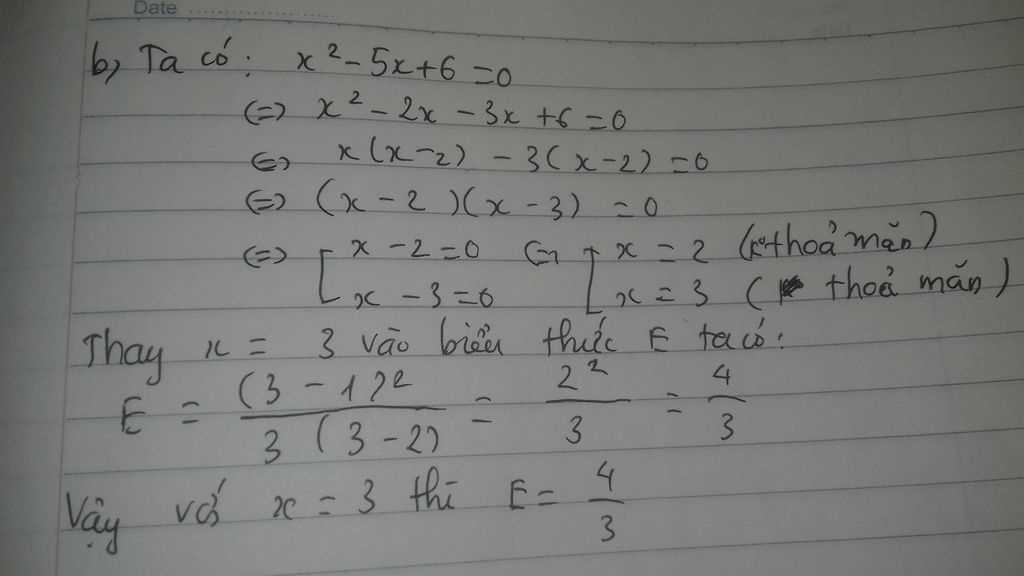 Date
b, Ta có: x² - 5x + 6 = 0
(=) x² - 2x - 3x + 6 = 0
(=) x(x-2) - 3(x-2) = 0
(=) (x - 2)(x - 3) = 0
(=) [ x - 2 = 0 (=) [ x = 2 (k° thoả mãn)
x - 3 = 0 x = 3 ( thoả mãn)
Thay x = 3 vào biểu thức E ta có:
E = (3 - 1)² / 3(3-2) = 2² / 3 = 4/3
Vậy với x = 3 thì E = 4/3